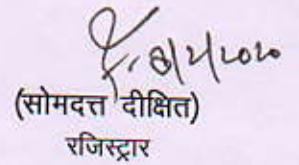 8/2/2020
(सोमदत्त दीक्षित)
रजिस्ट्रार